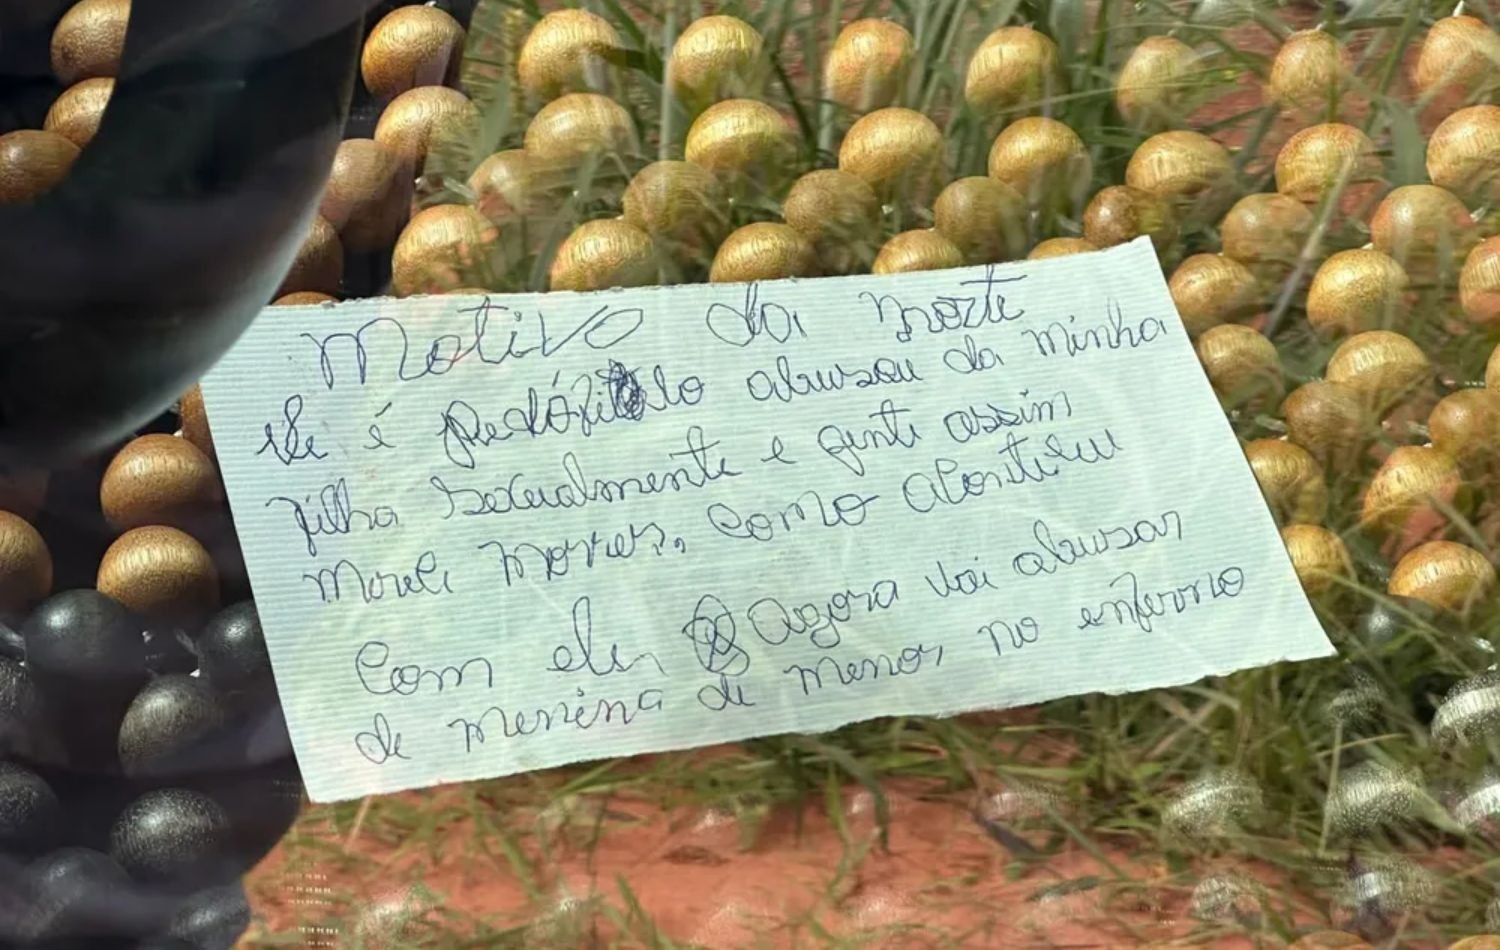 Motivo da morte
ele é pedófilo abusou da minha
filha sexualmente e gente assim
merece morrer, como aconteceu
Com ele, agora vai abusar
de menina de menor no inferno